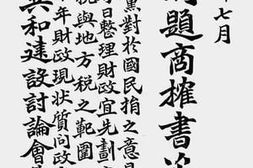 七月
題商榷書
黨對於國民捐之意見
日整理財政宜先劃
稅與地方稅之範圍
年財政現狀質問政
共和建設討論會